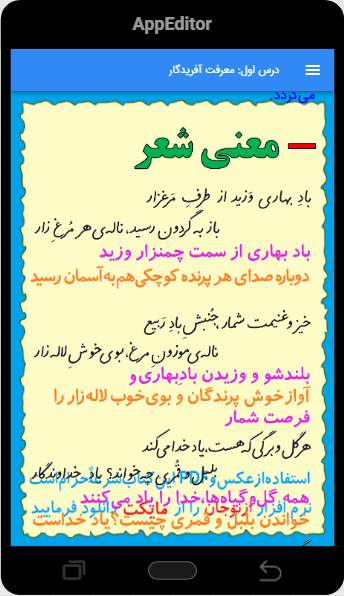 AppEditor
درس اول: معرفت آفریدگار
می‌گردد.
معنی شعر
بادِ بهاری وَزید از طرفِ مَرغزار
باز به گَردون رسید، ناله‌ی هر مُرغِ زار
باد بهاری از سمت چمنزار وزید
دوباره صدای هر پرنده کوچکی‌هم‌به‌آسمان رسید
خیز و غنیمت شمار، جُنبشِ بادِ رَبیع
ناله‌ی موزونِ مرغ، بوی خوشِ لاله‌زار
بلندشو و وزیدن بادِبهاری‌و
آوازخوش پرندگان و بوی‌خوب لاله‌زار را
فرصت شمار
هر گل و برگی که هست، یادِ خدا می‌کند
بلبل و قُمری چه خواند؟ یادِ خداوندگار
استفاده‌ازعکس‌وPDF این‌کتاب‌شرعاًحرام‌است
همه گل‌وگیاه‌ها،خدا را یاد می‌کنند
نرم افزار ازنوجان را از مایکت دانلود فرمایید
خواندن بلبل و قمری چیست؟یاد خداست